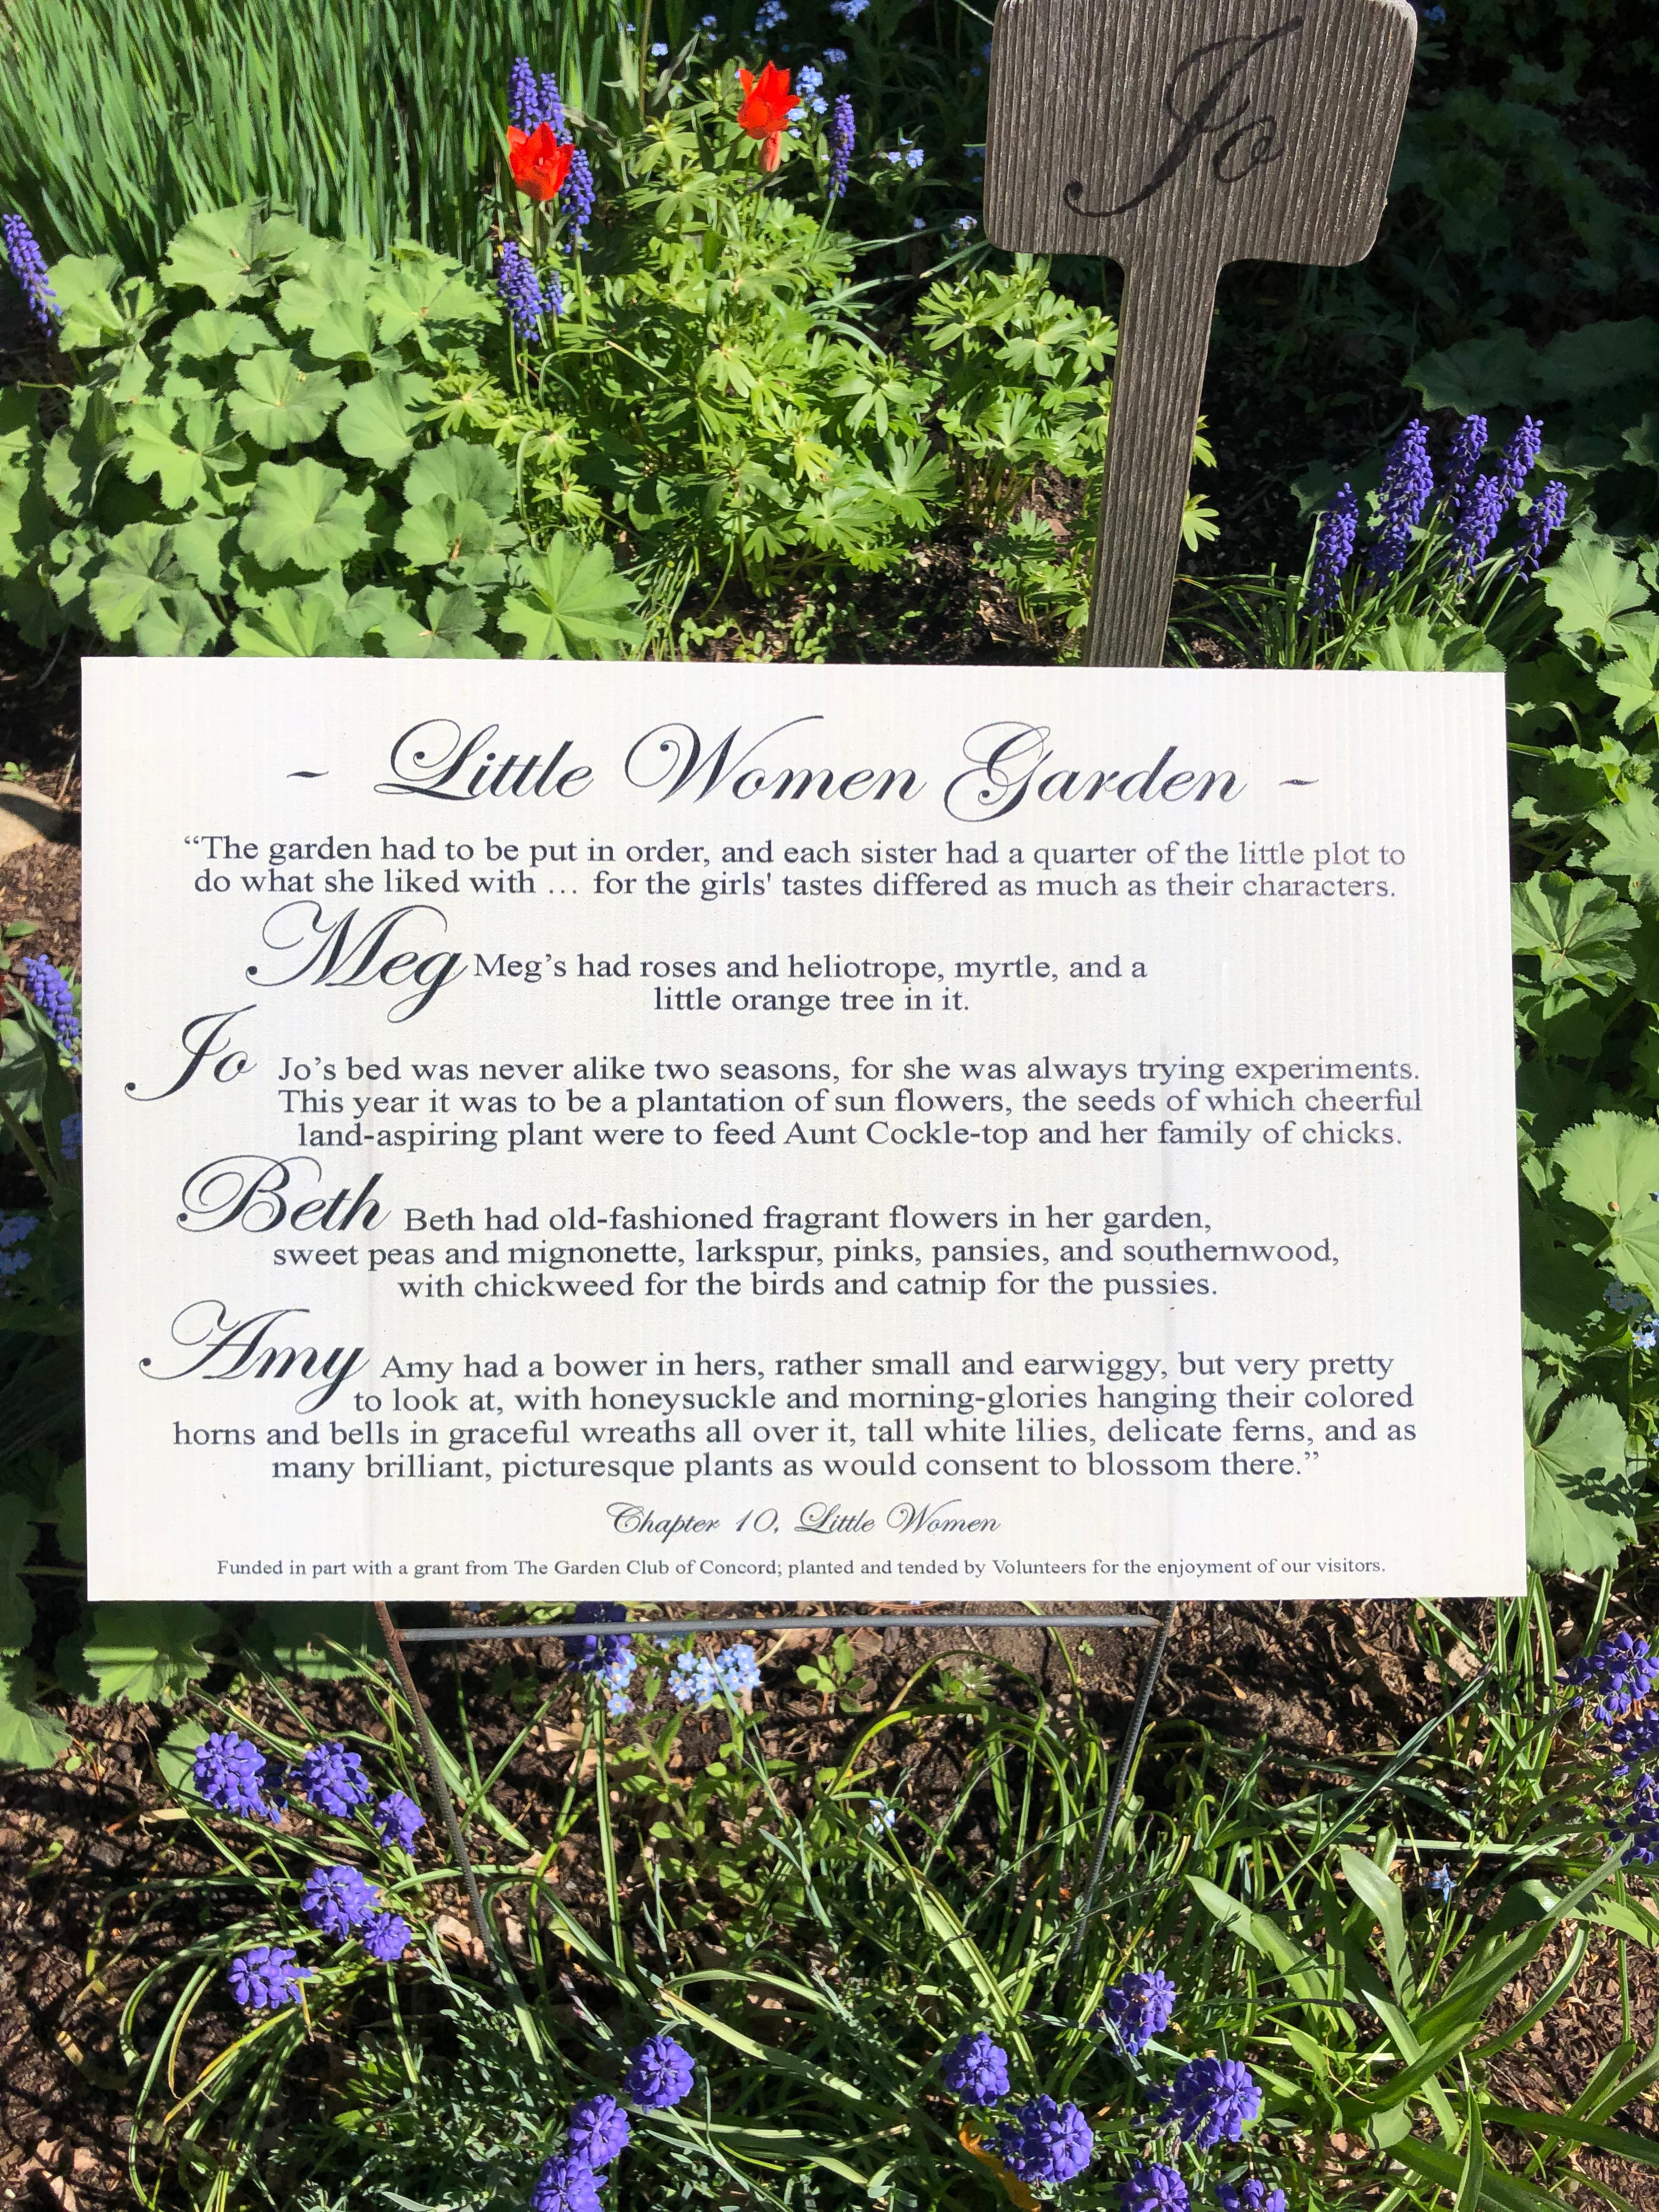 Jo
~ Little Women Garden ~
“The garden had to be put in order, and each sister had a quarter of the little plot to
do what she liked with ... for the girls' tastes differed as much as their characters.
Meg Meg’s had roses and heliotrope, myrtle, and a
little orange tree in it.
Jo Jo’s bed was never alike two seasons, for she was always trying experiments.
This year it was to be a plantation of sun flowers, the seeds of which cheerful
land-aspiring plant were to feed Aunt Cockle-top and her family of chicks.
Beth Beth had old-fashioned fragrant flowers in her garden,
sweet peas and mignonette, larkspur, pinks, pansies, and southernwood,
with chickweed for the birds and catnip for the pussies.
Amy Amy had a bower in hers, rather small and earwiggy, but very pretty
to look at, with honeysuckle and morning-glories hanging their colored
horns and bells in graceful wreaths all over it, tall white lilies, delicate ferns, and as
many brilliant, picturesque plants as would consent to blossom there.”
Chapter 10, Little Women
Funded in part with a grant from The Garden Club of Concord; planted and tended by Volunteers for the enjoyment of our visitors.